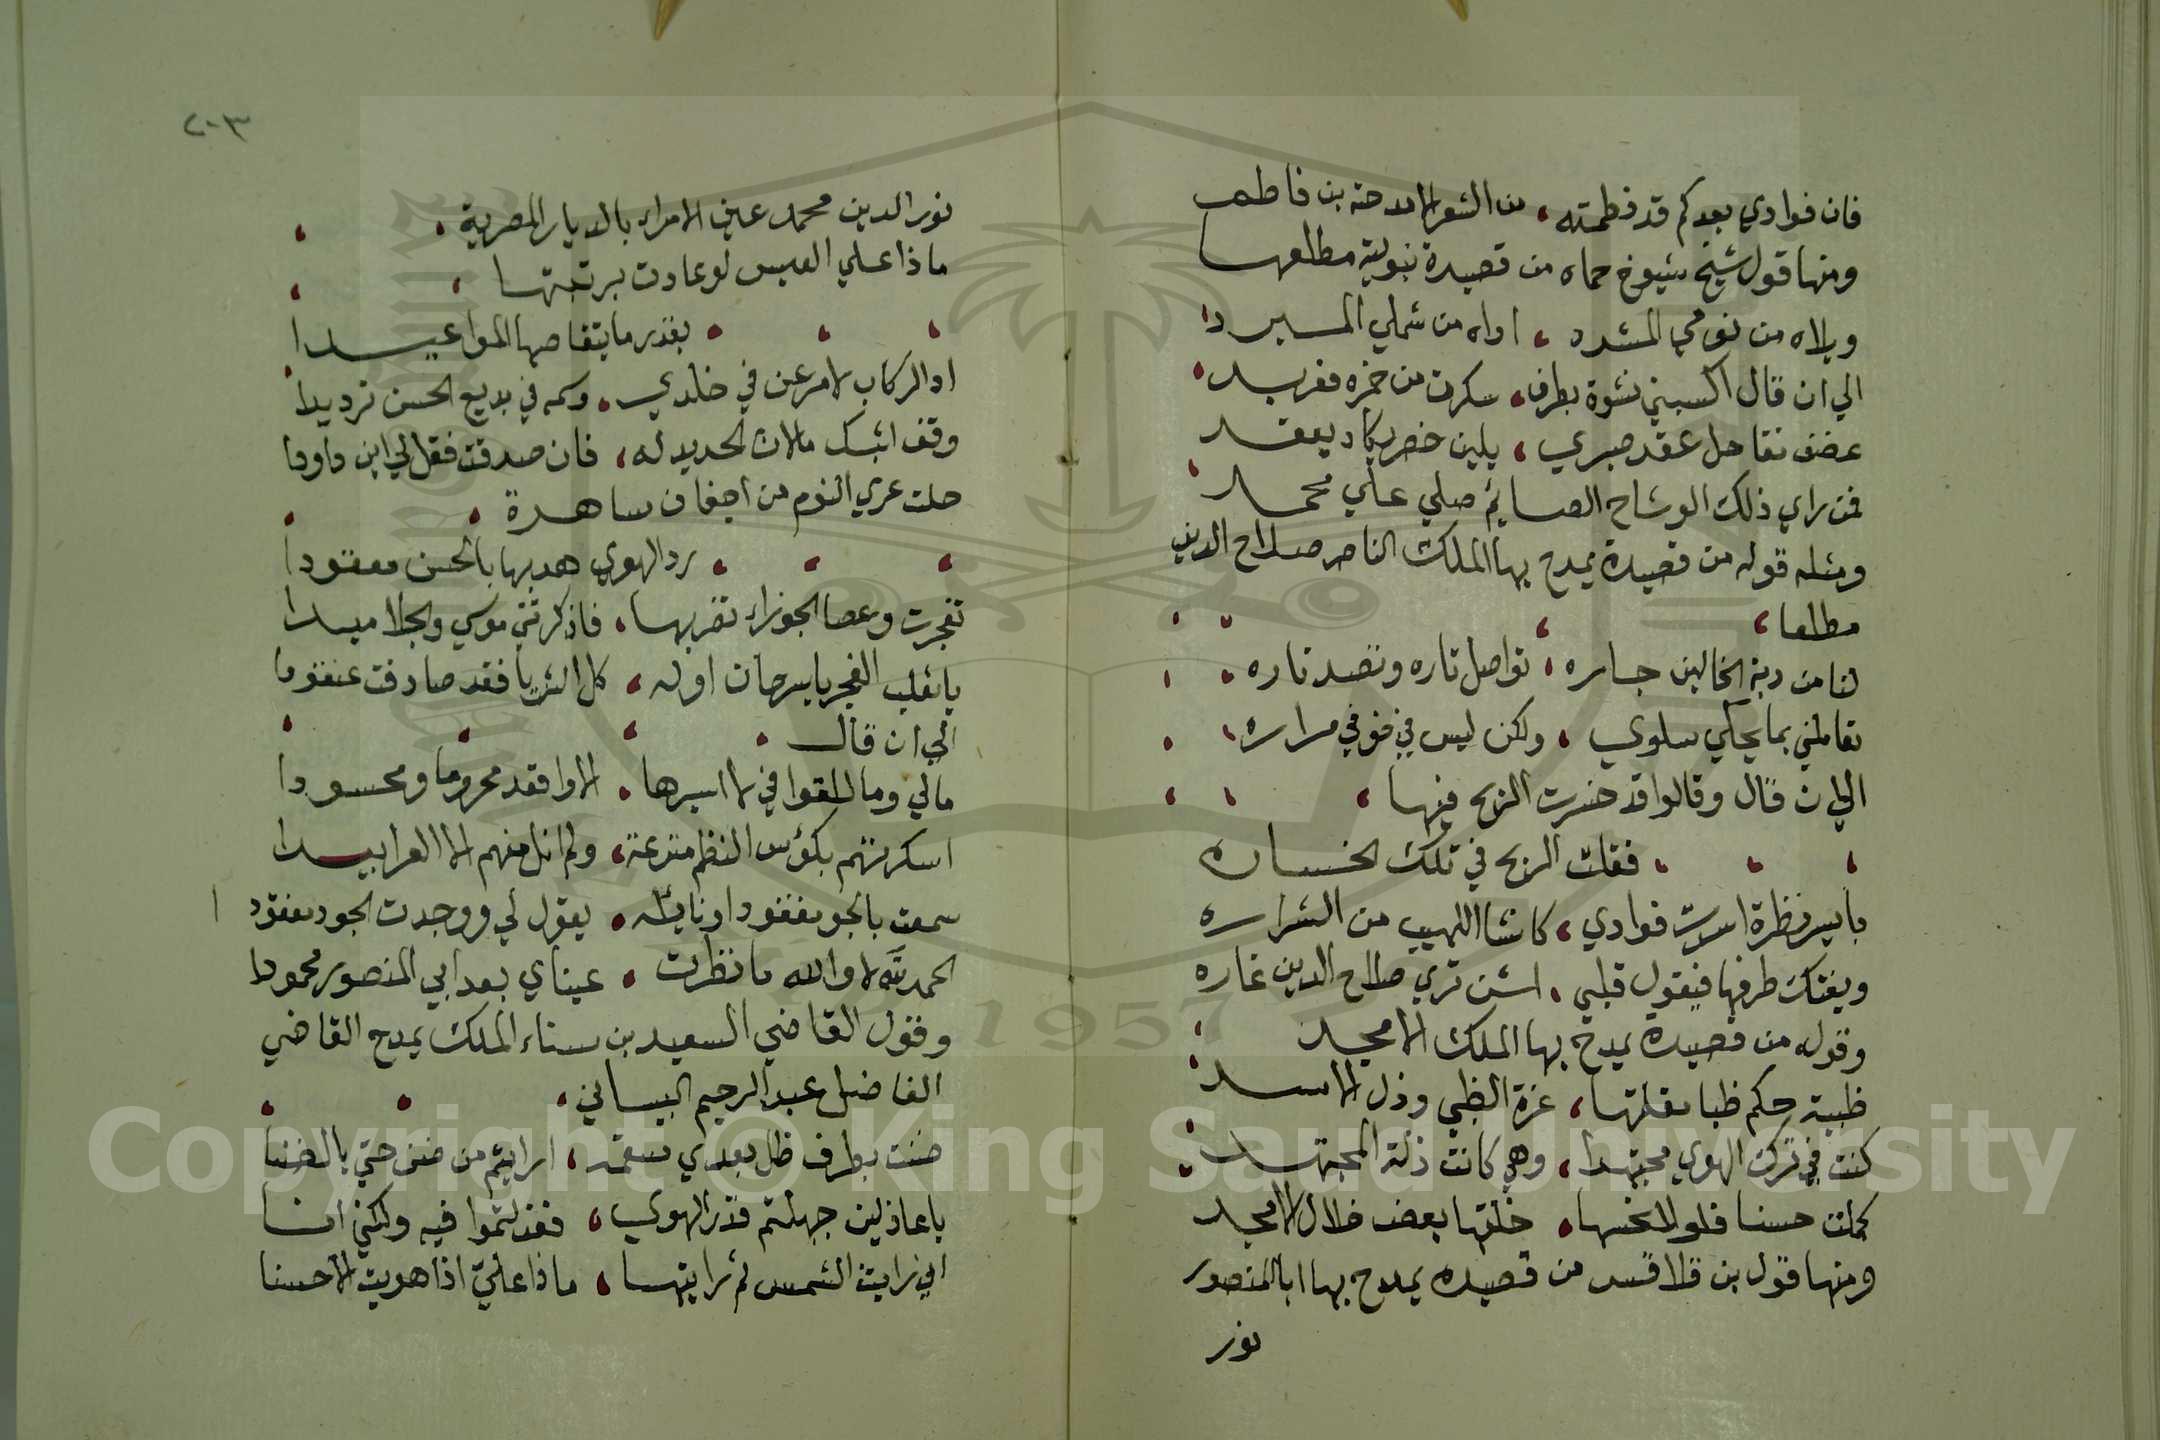 فان فوادي بعدكم قد فطمته من الشعر الا مدحة بن فاطم
ومنها قول شيخ شيوخ حماه من قصيدة نبوية مطلعها
ويلاه من نومي المشرد اواه من شملي المبدد
الي ان قال اكسبني نشوة بطرف سكرت من خمره فعربد
غصن نقا حل عقد صبري بلين خصر يكاد يعقد
فمن راي ذلك الوشاح الصايم صلي علي محمد
ومثله قوله من قصيدة يمدح بها الملك الناصر صلاح الدين
مطلعها
لنا من ربة الخالين جاره تواصل تاره وتصد تاره
تعاملني بما يحلي سلوي ولكن ليس في فوفي مراره
الي ان قال وقالوا قد خسرت الربح فيها
فقلت الربح في تلك الخساره
بايسر نظرة اسرت فوادي كما نشا اللهيب من الشراره
ويفتك طرفها فيقول قلبي اشن تري صلاح الدين غاره
وقوله من قصيدة يمدح بها الملك الامجد
ظبية حكم ظبا مقلتها عزة الظبي وذل الاسد
كنت في تركي الهوي مجتهدا وهي كانت زلة المجتهد
كملت حسنا فلولا بخسها خلتها بعض خلال الامجد
ومنها قول بن قلاقس من قصيده يمدح بها ابا المنصور
نور
٢٠٣
نور الدين محمد عين الامراء بالديار المصرية
ماذا علي العيس لو عادت بربتها
بقدر ما يتقاصها المواعيدا
اد الركاب لامر عن في خلدي وكمه في بديع الحسن ترديدا
وقف اثبك ما لان الحديد له فان صدقت فقل لي ابن داودا
حلت عري النوم من اجفان ساهرة
رد الهوي هدبها بالحسن معقودا
تفجرت وعصا الجوزاء تضربها فاذكرتني موسي والجلاميدا
يا ثعلب الفجر يا سرحان اوله كل الثريا فقد صادفت عنقودا
الي ان قال
مالي وما للقوافي لا اسيرها الا وافقد محروما ومحسودا
اسكرتهم بكؤس النظم مترعة ولم انل منهم الا العرابيدا
سمعت بالجود مفقود او نايله يقول لي ووجدت الجود مفقودا
الحمد لله لا والله ما نظرت عيناي بعد ابي المنصور محمودا
وقول القاضي السعيد بن سناء الملك يمدح القاضي
الفاضل عبد الرحيم البيساني
ضنت بطرف ظل بعدي سقمه ارايتم من ضن حتي بالضنا
يا عاذلين جهلتم قدر الهوي فعذلتموا فيه ولكني انا
اني رايت الشمس ثم رايتها ماذا علي اذا هويت الاحسنا
1957
Copyright © King Saud University